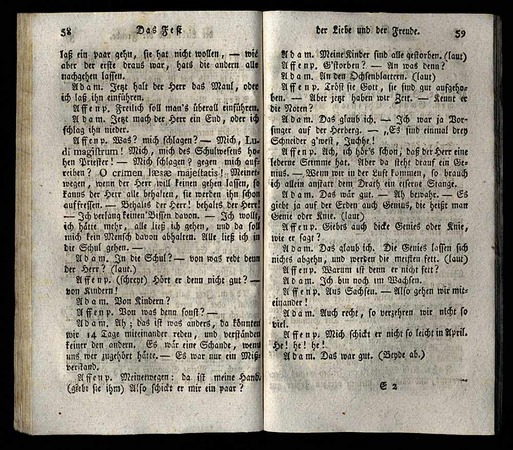 58 Das Fest
laß ein paar gehn, sie hat nicht wollen, — wie
aber der erste draus war, hats die andern alle
nachgehen lassen.
Adam. Jetzt halt der Herr das Maul, oder
ich laß ihn einführen.
Affenp. Freilich soll man's überall einführen.
Adam. Jetzt mach der Herr ein End, oder ich
schlag ihn nieder.
Affenp. Was? mich schlagen? — Mich, Lu-
di magistrum! Mich, mich des Schulwesens ho-
hen Priester! — Mich schlagen? gegen mich auf-
reiben? O crimen læsæ majestatis! Meinet-
wegen, wenn der Herr will keinen gehen lassen, so
kanns der Herr alle behalten, sie werden ihn schon
auffressen. — Behalts der Herr! behalts der Herr!
— Ich verlang keinen Bissen davon. — Ich wollt,
ich hätte mehr, alle ließ ich gehen, und da soll
mich kein Mensch davon abhalten. Alle ließ ich in
die Schul gehen. —
Adam. In die Schul? — von was redt denn
der Herr? (laut.)
Affenp. (schreyt) Hört er denn nicht gut? —
von Kindern!
Adam. Von Kindern?
Affenp. Von was denn sonst? —
Adam. Ah; das ist was anders, da könnten
wir 14 Tage miteinander reden, und verständen
keiner den andern. Es wär eine Schande, wenn
uns wer zugehört hätte. — Es war nur ein Miß-
verstand.
Affenp. Meinetwegen: da ist meine Hand.
(giebt sie ihm) Also schickt er mir ein paar?
der Liebe und der Freude. 59
Adam. Meine Kinder sind alle gestorben. (laut)
Affenp. G'storben? — An was denn?
Adam. An den Ochsenblattern. (laut)
Affenp. Tröst sie Gott, sie sind gut aufgeho-
ben. — Aber jetzt haben wir Zeit. — Kennt er
die Noten?
Adam. Das glaub ich. — Ich war ja Vor-
singer auf der Herberg. — „Es sind einmal drey
Schneider g'west, Juchhe!
Affenp. Ach, ich hör's schon, daß der Herr eine
lederne Stimme hat. Aber da steht drauf ein Ge-
nius. — Wenn wir in der Luft kommen, so brauch
ich allein anstatt dem Drath ein eiserne Stange.
Adam. Das wär gut. — Ah bewahr. — Es
giebt ja auf der Erden auch Genius, die heißt man
Genie oder Knie. (laut)
Affenp. Giebts auch dicke Genies oder Knie,
wie er sagt?
Adam. Das glaub ich. Die Genies lassen sich
nichts abgehn, und werden die meisten fett. (laut)
Affenp. Warum ist denn er nicht fett?
Adam. Ich bin noch im Wachsen.
Affenp. Aus Sachsen. — Also gehen wir mit-
einander!
Adam. Auch recht, so vergehen wir nicht so
viel.
Affenp. Mich schickt er nicht so leicht in April.
He! he! he!
Adam. Das war gut. (Beyde ab.)
E 2